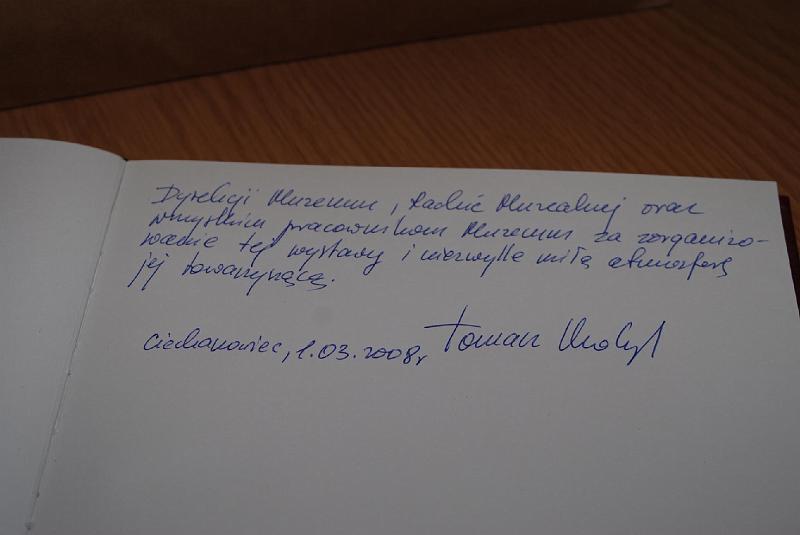 Dyrekcji Muzeum, Radzie Muzealnej oraz
wszystkim pracownikom Muzeum za zorganizo-
wanie tej wystawy i niezwykle miłą atmosferę
jej towarzyszącą.
Ciechanowiec, 1.03.2008r Tomasz